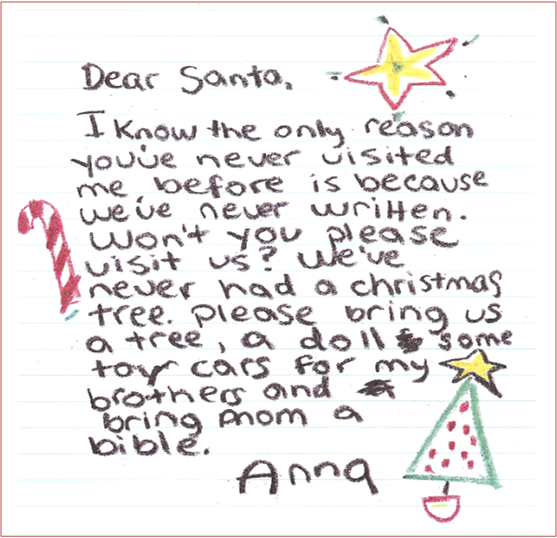 Dear Santa,
I know the only reason
you've never visited
me before is because
we've never written.
Won't you please
visit us? We've
never had a christmas
tree. please bring us
a tree, a doll some
toy cars for my
brothers and
bring mom a
bible.
Anna